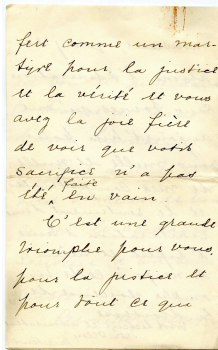 fert comme un mar-
tyre pour la justice
et la vérité et vous
avez la joie fière
de voir que votre
sacrifice n'a pas
été faite en vain
C'est une grande
triomphe pour vous,
pour la justice et
pour tout ce qui